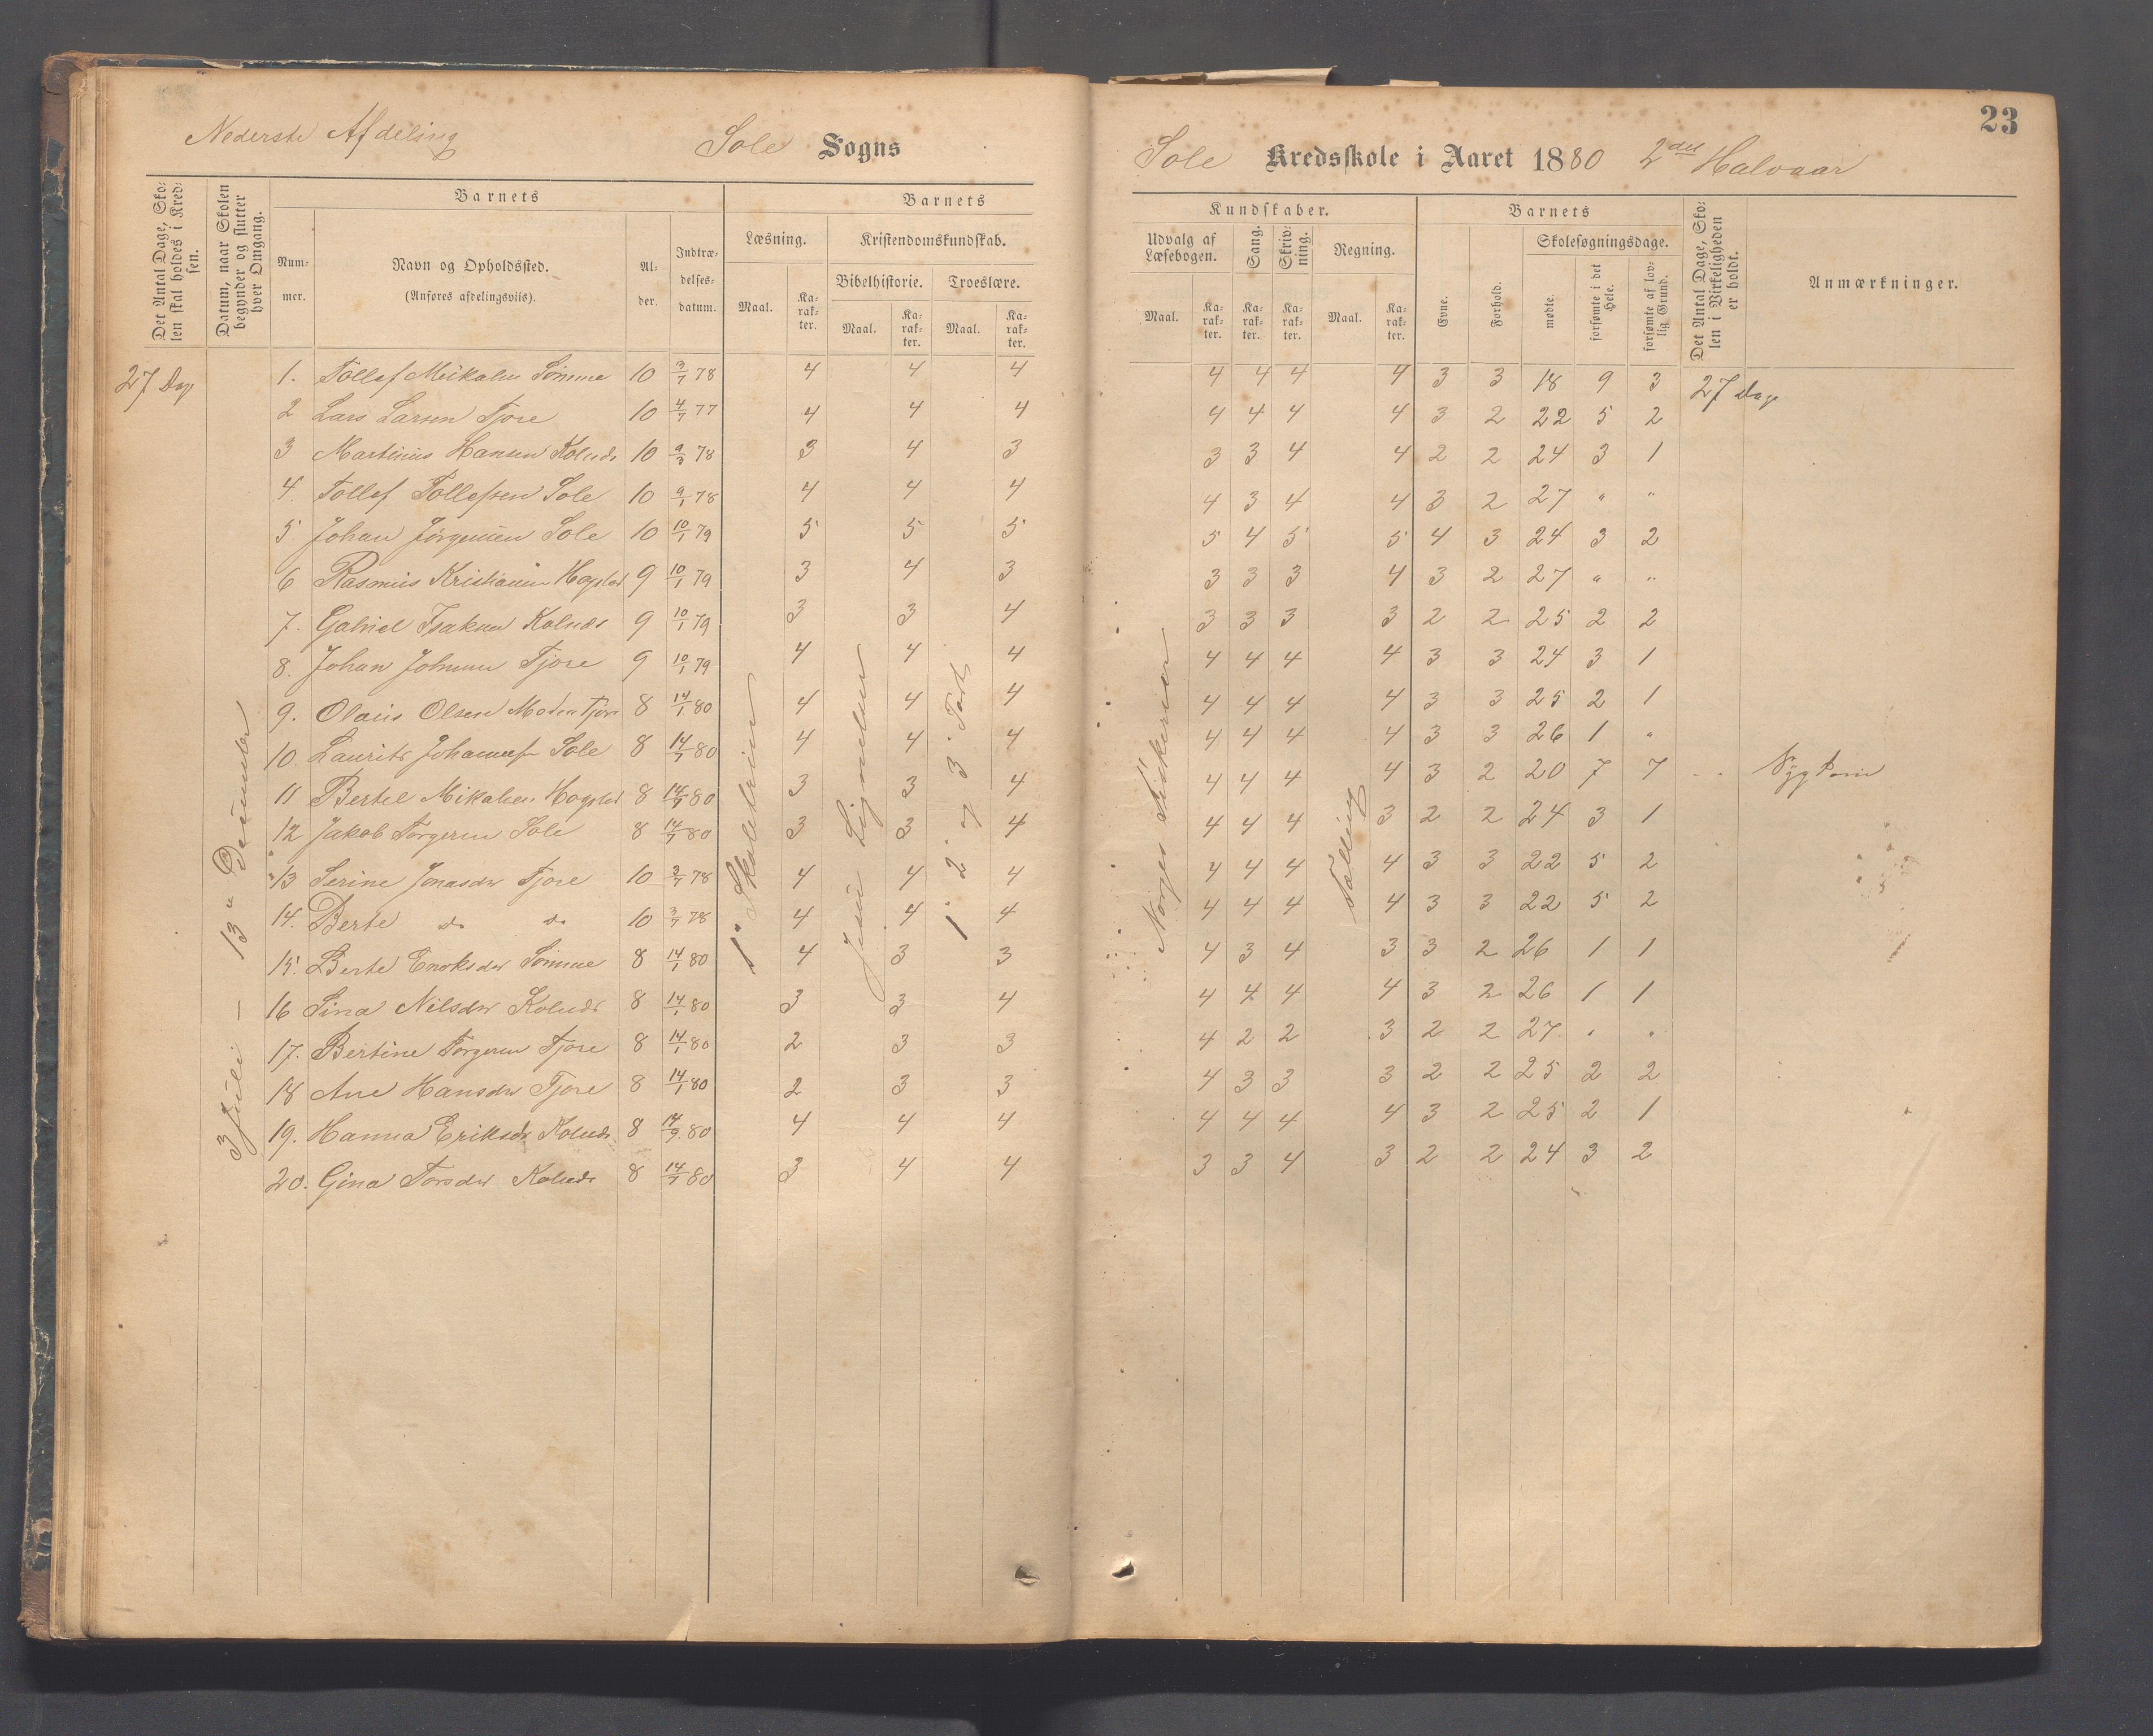 23
Nederste Afdeling
Sole Sogns
Sole Kredsskole i Aaret 1880 2det Halvaar
Det Antal Dage, Skolen skal holdes i Kredsen.
Datum, naar Skolen begynder og slutter hver Omgang.
Barnets
Nummer.
Navn og Opholdssted.
(Anføres afdelingsviis).
Alder.
Indtrædelsesdatum.
Barnets
Læsning.
Maal.
Karakter.
Kristendomskundskab.
Bibelhistorie.
Maal.
Karakter.
Troeslære.
Maal.
Karakter.
Kundskaber.
Udvalg af Læsebogen.
Maal.
Karakter.
Sang.
Karakter.
Skrivning.
Karakter.
Regning.
Maal.
Karakter.
Barnets
Evne.
Forhold.
Skolesøgningsdage.
mødte.
forsømte i det Hele.
forsømte af lovlig Grund.
Det Antal Dage, Skolen i Virkeligheden er holdt.
Anmærkninger.
27 Dage
3 Juli – 13 Desember
1. Tollef Mikalsen Sømme 10 3/7 78 4 4 4 4 4 4 4 3 3 18 9 3 27 Dage
2 Lars Larsen Tjore 10 4/7 77 4 4 4 4 4 4 4 3 2 22 5 2
3 Martinius Hansen Kolneds 10 9/3 78 3 4 3 3 3 4 4 2 2 24 3 1
4. Tollef Tollefsen Sole 10 9/1 78 4 4 4 4 3 4 4 3 2 27 " "
5 Johan Jørgensen Sole 10 10/1 79 5 5 5 5 4 5 5 4 3 24 3 2
6 Rasmus Kristiansen Hogstad 9 10/1 79 3 4 3 3 3 3 4 3 2 27 " "
7. Gabriel Isaksen Kolneds 9 10/1 79 3 3 4 3 3 3 3 2 2 25 2 2
8. Johan Johnsen Tjore 9 10/1 79 4 4 4 4 4 4 4 3 3 24 3 1
9. Olaus Olsen Tjore 8 14/1 80 4 4 4 4 4 4 4 3 3 25 2 1
10. Laurits Johannesen Sole 8 14/7 80 4 4 4 4 4 4 4 3 3 26 1 "
11 Bertel Mikalsen Hogstad 8 14/7 80 3 3 4 4 4 4 4 3 2 20 7 7 Sygdom
12 Jakob Torgersen Sole 8 14/7 80 3 3 4 4 4 4 3 2 2 24 3 1
13 Serine Jonasdtr Tjore 10 3/7 78 4 4 4 4 4 4 4 3 3 22 5 2
14. Berte do do 10 3/7 78 4 4 4 4 4 4 4 3 3 22 5 2
15. Berte Enoksdtr Sømme 8 14/1 80 4 3 3 4 3 4 3 3 2 26 1 1
16 Sina Nilsdtr Kolneds 8 14/1 80 3 3 4 4 4 4 4 3 2 26 1 1
17. Bertine Torgersen Tjore 8 14/1 80 2 3 3 4 2 2 3 2 2 27 " "
18 Ane Hansdtr Tjore 8 14/1 80 2 3 3 4 3 3 3 2 2 25 2 2
19. Hanna Eriksdtr Kolneds 8 14/9 80 4 4 4 4 4 4 4 3 2 25 2 1
20. Gina Torsdtr Kolneds 8 14/7 80 3 4 4 3 3 4 3 2 2 24 3 2
1ste Skoletrin
Jesu Lignelser
1 2 og 3 Part
Norges Fiskerier
Tælling